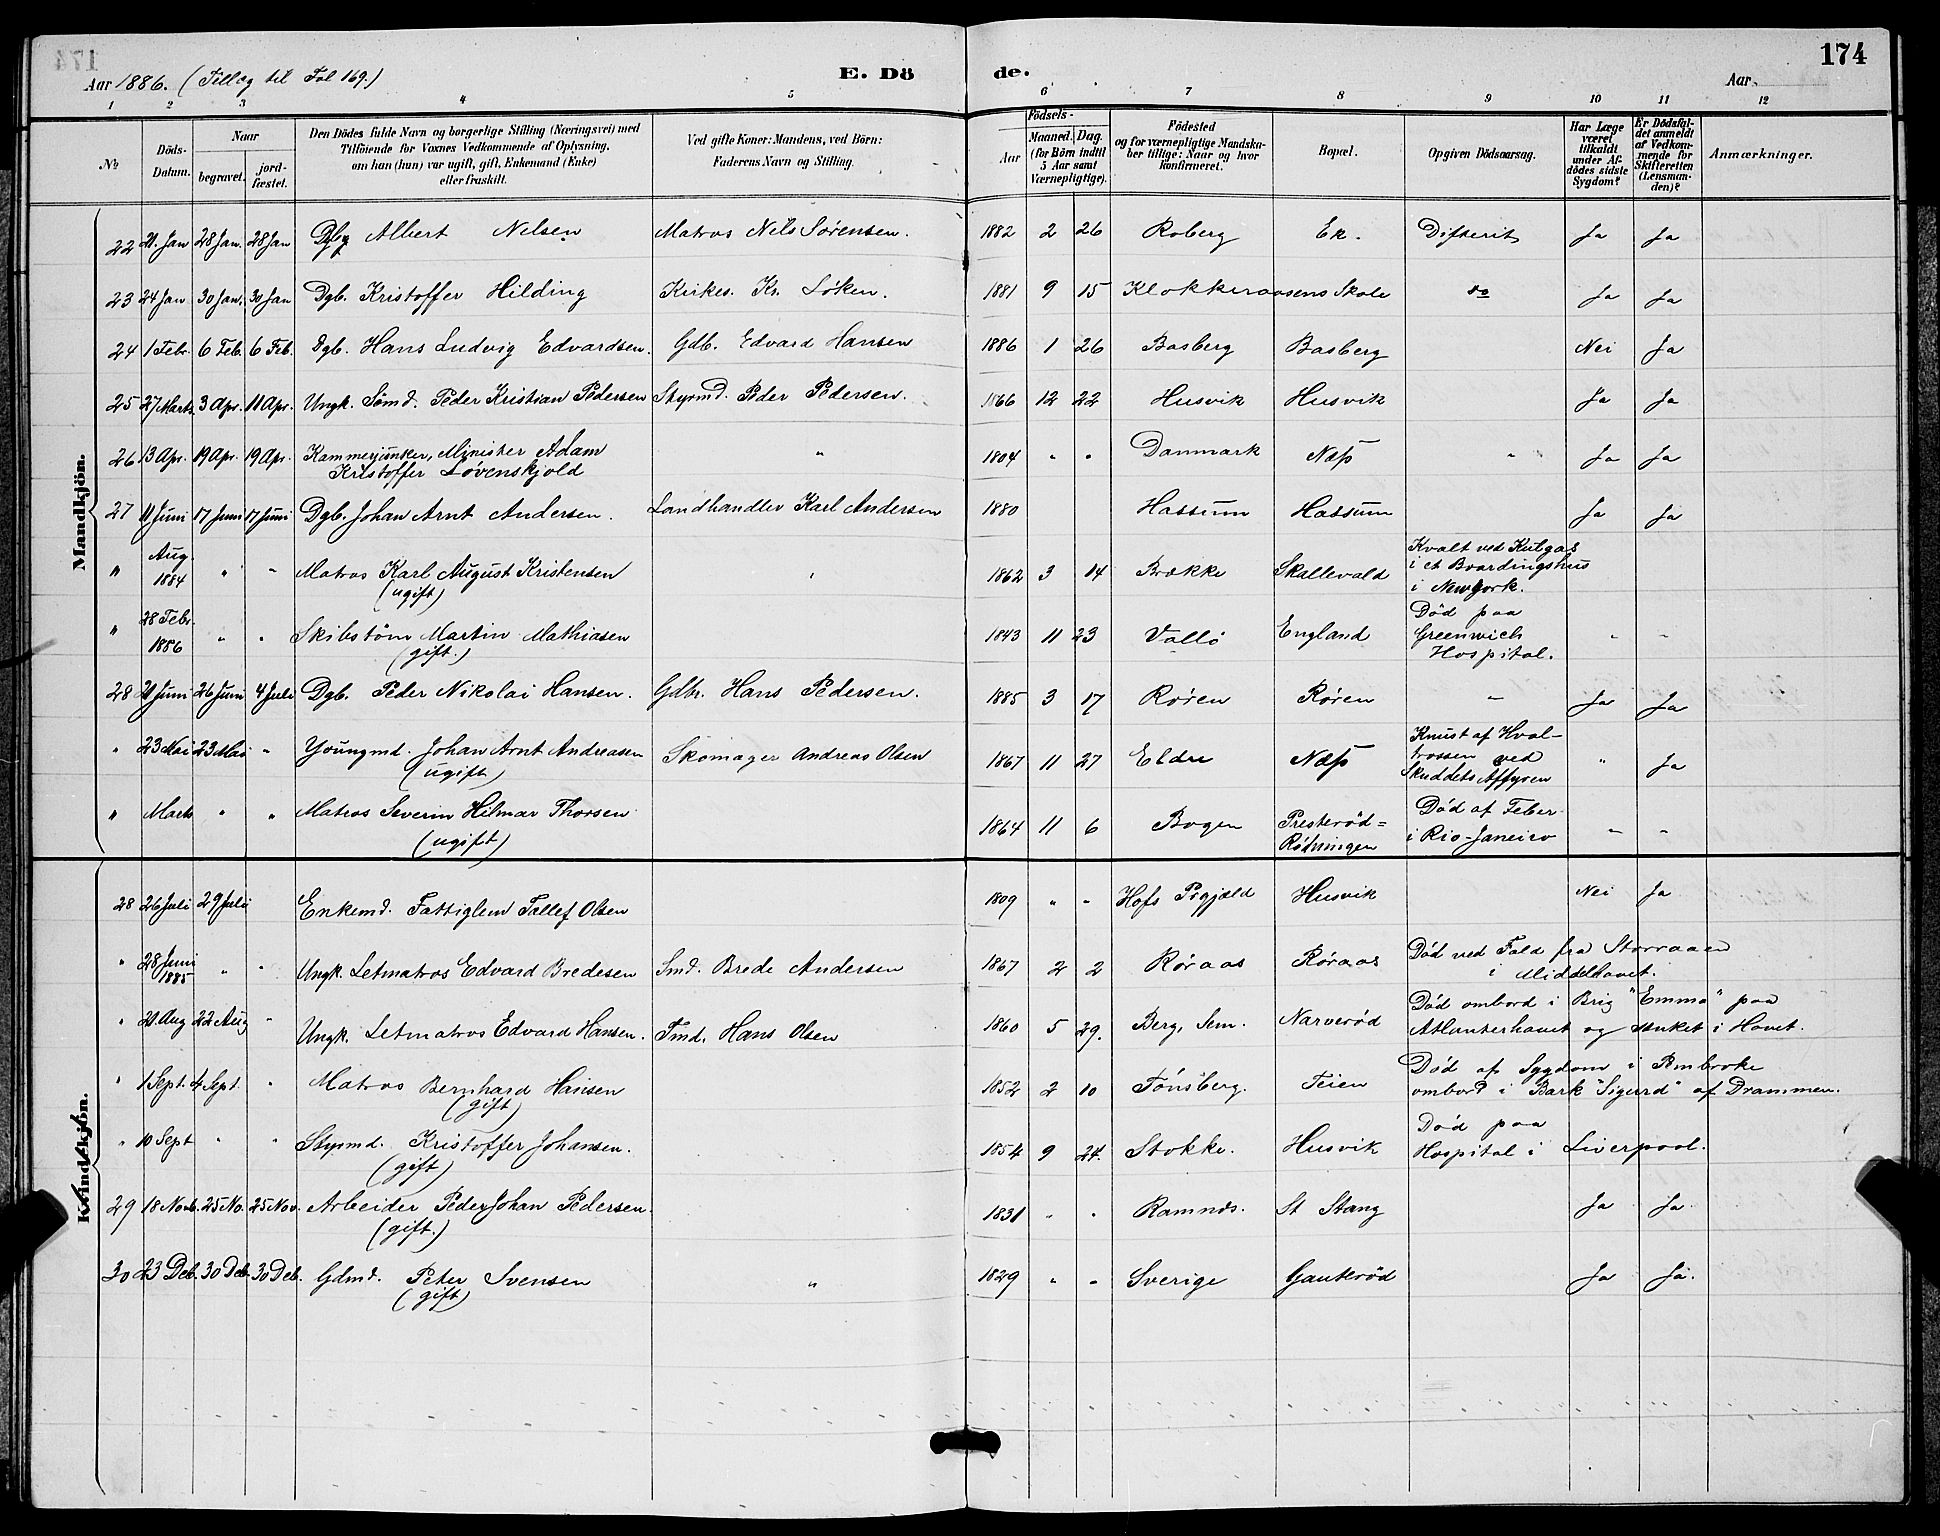 174
Aar 1886. (Tillæg til Fol 169.) E. Dö
de. Aar
1 2 3 4 5 6 7 8 9 10 11 12
№ Döds-Datum. Naar begravet. jordfæstet. Den Dödes fulde Navn og borgerlige Stilling (Næringsvei) med Tilföiende for Voxnes Vedkommende af Oplysning, om han (hun) var ugift, gift, Enkemand (Enke) eller fraskilt. Ved gifte Koner: Mandens, ved Börn: Faderens Navn og Stilling. Födsels- Aar Maaned. Dag. (for Börn indtil 5 Aar samt Værnepligtige). Födested og for værnepligtige Mandskaber tillige: Naar og hvor konfirmeret. Bopæl. Opgiven Dödsaarsag. Har Læge været tilkaldt under Afdödes sidste Sygdom? Er Dödsfaldet anmeldt af Vedkommende for Skifteretten (Lensmanden)? Anmærkninger.
Mandkjön.
22 21. Jan 28 Jan. 28 Jan Dgbg Albert Nelsen Matros Nels Sørensen. 1882 2 26 Roberg Ek. Difterit Ja Ja
23 24 Jan 30 Jan. 30 Jan Dgb. Kristoffer Hilding Kirkes. Kr. Løken. 1881 9 15 Klokkeraasens Skole do Ja Ja
24 1 Febr. 6 Feb. 6 Feb. Dgb. Hans Ludvig Edvardsen. Gdb. Edvard Hansen 1886 1 26 Basberg Basberg Nei Ja
25 27 Marts 3 Apr. 11 Apr. Ungk. Sømd. Peder Kristian Pedersen Styrmd. Peder Pedersen. 1866 12 22 Husvik Husvik Ja Ja
26 13 Apr. 19 Apr. 19 Apr. Kammerjunker, Minister Adam " 1804 " " Danmark Næss " Ja Ja
Kristoffer Løvenskjold
27 11 Juni 17 Juni 17 Juni Dgb. Johan Arnt Andersen. Landhandler Karl Andersen 1880 Hassum Hassum Ja Ja
" Aug. 1884 " " Matros Karl August Kristensen " 1862 3 14 Brække Skallevald Kvalt ved Kulgas
(ugift) i et Boardingshus
i NewYork.
" 28 Febr. 1886 " " Skibstøm Martin Mathiasen 1843 11 23 Vallö England Död paa
(gift.) Greenwich " "
Hospital.
28 21 Juni 26 Juni 4 Juli Dgb. Peder Nikolai Hansen. Gdbr. Hans Pedersen. 1885 3 17 Røren Røren " Ja Ja
" 23 Mai 23 Mai " Youngmd. Johan Arnt Andreasen Skomager Andreas Olsen 1867 11 27 Eldre Næss Knust af Hval-
(ugift) trossen ved " Ja
Skuddets Affyren
" Marts " " Matros Severin Hilmar Thorsen 1864 11 6 Bogen Presterød= Død af Feber
(ugift) Rødningen i Rio-Janeiro " "
Kvindekjön.
28 26 Juli 29 Juli Enkemd. Fattiglem Tallef Olsen 1809 " " Hofs Prgjæld Husvik Nei Ja
" 28 Juni 1885 " " Ungk. Letmatros Edvard Bredesen Smd. Brede Andersen 1867 2 2 Røraas Røraas Død ved Fald fra Storraaen
i Middelhavet.
" 21 Aug 22 Aug " Ungk. Letmatros Edvard Hansen. Tmd. Hans Olsen 1860 5 29. Berg, Sem. Narverød Død ombord i Brig "Emma" paa
Atlanterhavet og sænket i Havet.
" 1 Sept. 4 Sept. " Matros Bernhard Hansen 1852 2 10 Tønsberg. Teien Død af Sygdom i Pembroke
(gift) ombord i Bark "Sigurd" af Drammen.
" 10 Sept " " Styrmd. Kristoffer Johansen. 1854 9 24. Stokke. Husvik Død paa
(gift) Hospital i Liverpool.
29 18 Novb. 25 No. 25 Nov. Arbeider Peder Johan Pedersen. 1831 " " Ramnes. St Stang Ja Ja
(gift.)
30 23 Deb. 30 Deb. 30 Deb. Gdmd. Peter Svensen " 1829 " " Sverige Gauterød Ja Ja.
(gift)